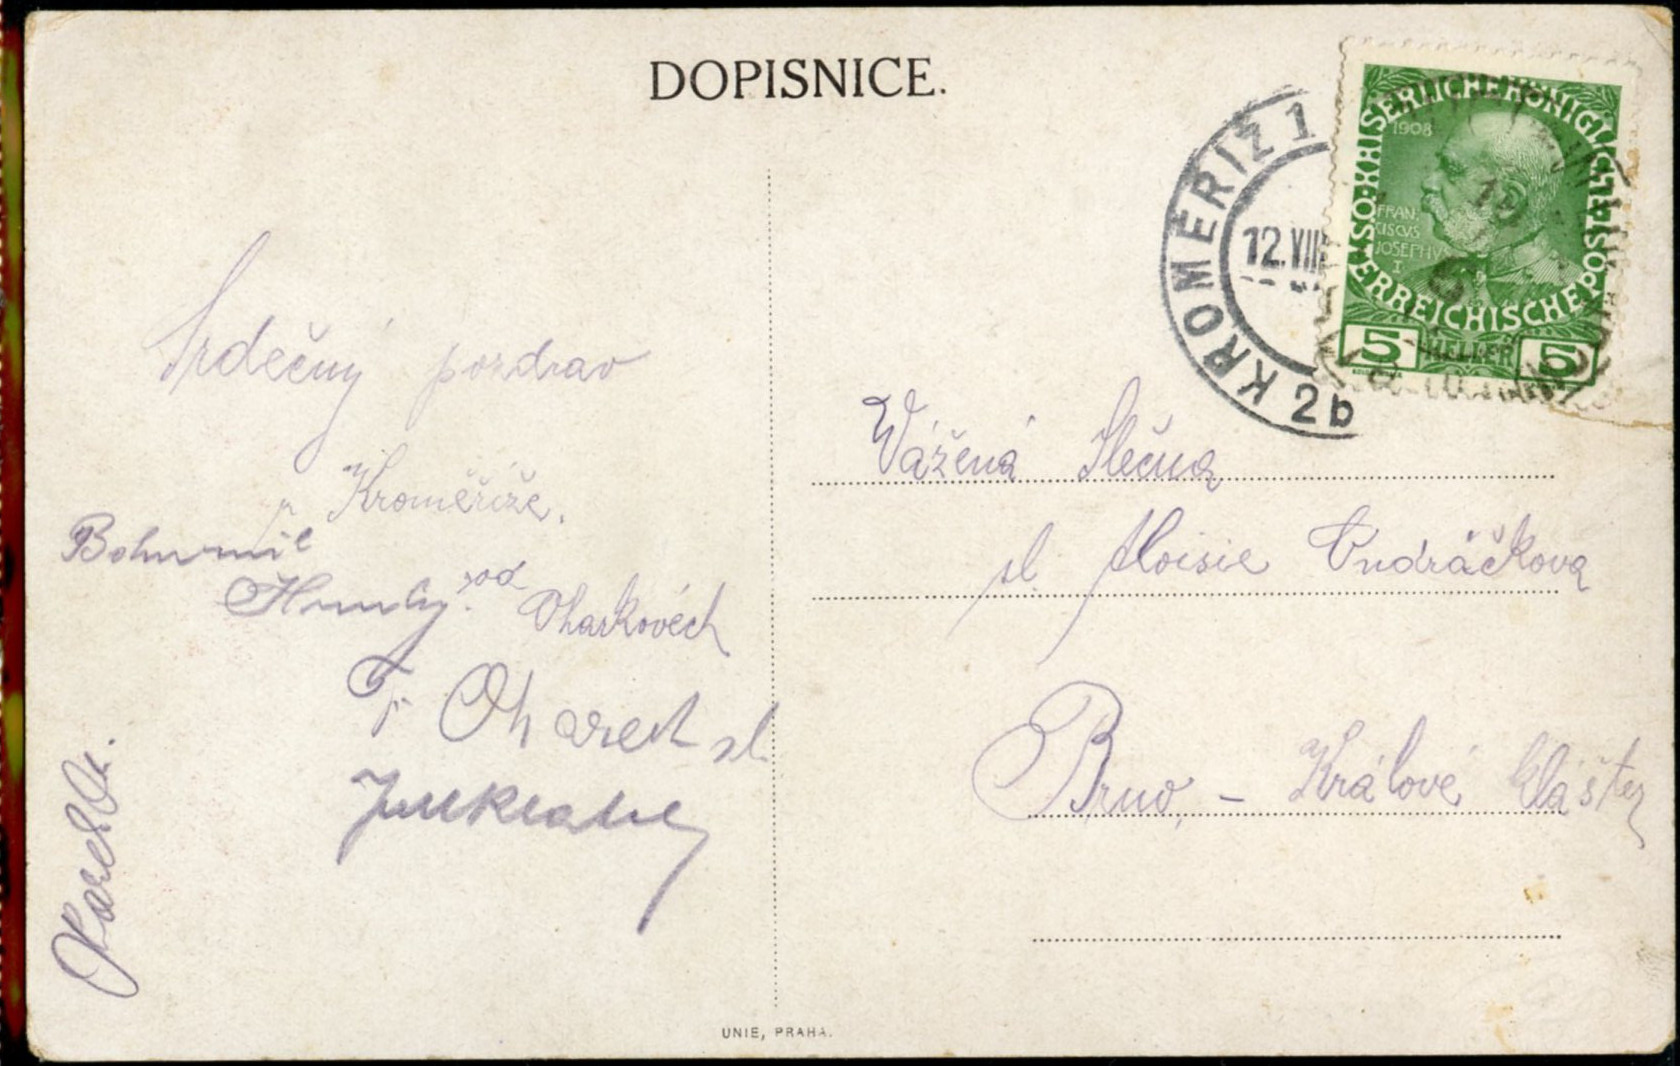 DOPISNICE.
KROMĚŘÍŽ 1
12.VIII
a2
KAISERLICHE KÖNIGLICHE ÖSTERREICHISCHE POST
1908
FRAN
CISCVS
JOSEPHV
I
5 HELLER 5
Srdečný pozdrav
z Kroměříže.
Bohumil
od
Vážená Slečna
sl. Aloisie Ondráčkova
Brno, – Králové Klášter
Karel
UNIE, PRAHA.